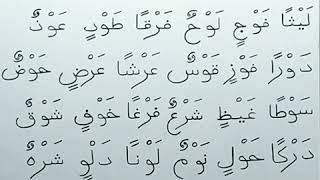 لَيْثًا فَوْجٍ لَوْحٌ فَرْقًا طَوْدٍ عَوْذٌ
دَوْرًا فَوْزٍ قَوْسٌ عَرْشًا عَرْضٍ حَوْضٌ
سَوْطًا غَيْظٍ شَرْعٌ فَرْغًا خَوْفٍ شَوْقٌ
دَرْكًا حَوْلٍ نَوْمٌ لَوْنًا دَلْوٍ شَرْهٌ